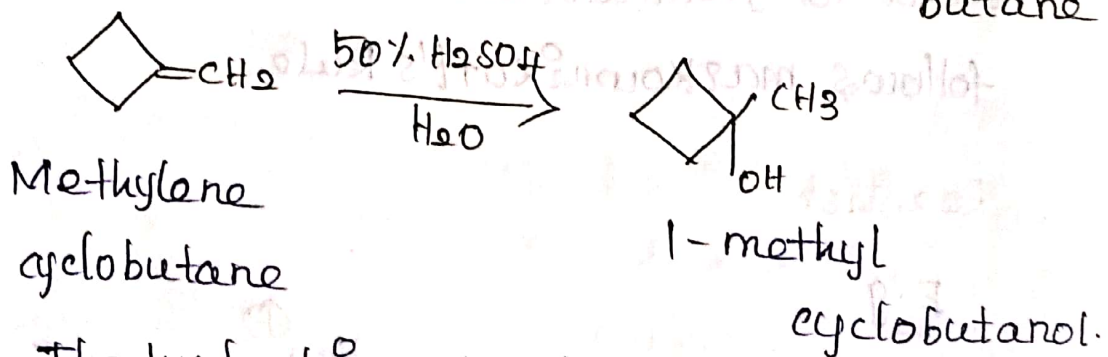 butane
=CH2 50% H2SO4 CH3
H2O
OH
Methylene
cyclobutane
1-methyl
cyclobutanol.